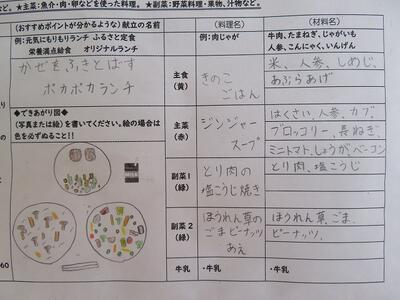 ★主菜：魚介・肉・卵などを使った料理。★副菜：野菜料理・果物、汁物など。
(おすすめポイントが分かるような) 献立の名前
例:元気にもりもりランチ ふるさと定食
栄養満点給食 オリジナルランチ
かぜをふきとばす
ポカポカランチ
◆できあがり図◆
(写真または絵)を書いてください。絵の場合は
色を必ずぬること！！
MILK
(料理名)
・例:肉じゃが
主食
(黄)
きのこ
ごはん
主菜
(赤)
ジンジャー
スープ
副菜1
(緑)
とり肉の
塩こうじ焼き
副菜2
(緑)
ほうれん草の
ごまピーナッツ
あえ
・牛乳
(材料名)
牛肉、たまねぎ、じゃがいも
人参、こんにゃく、いんげん
米、人参、しめじ、
あぶらあげ
はくさい、人参、カブ、
ブロッコリー、長ねぎ、
ミニトマト、しょうが、ベーコン
とり肉、塩こうじ
ほうれん草、ごま、
ピーナッツ、
・牛乳
60